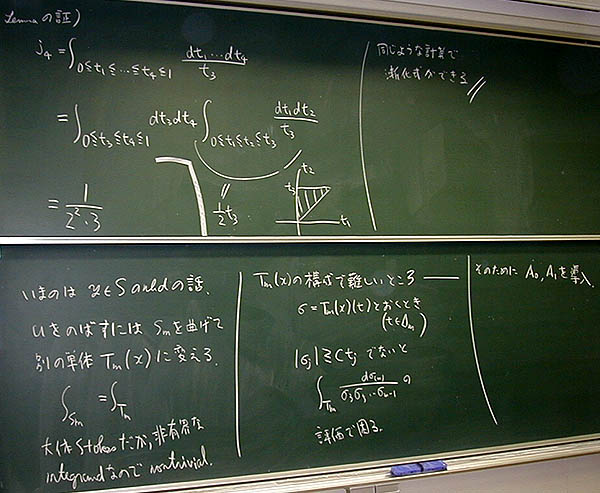 Lemma の証)
j₄ = ∫_{0≤t₁≤…≤t₄≤1} dt₁…dt₄ / t₃
= ∫_{0≤t₃≤t₄≤1} dt₃dt₄ ∫_{0≤t₁≤t₂≤t₃} dt₁dt₂ / t₃
= 1 / 2²·3
‖
½t₃
t₂
t₃
t₁
同じような計算で
漸化式ができる //
いまのは x∈Sould の話.
uをのばすには Smを曲げて
別の単体 Tm(x) に変える.
∫_{Sm} = ∫_{Tm}
大体 Stokes だが, 非有界な
integrand なので nontrivial.
Tm(x) の構成で難しいところ ——
σ = Tm(x)(t) とおくとき
(t∈Δm)
|σj| ≧ Ctj でないと
∫_{Tm} の
評価で困る.
そのために A₀, A₁ を導入.